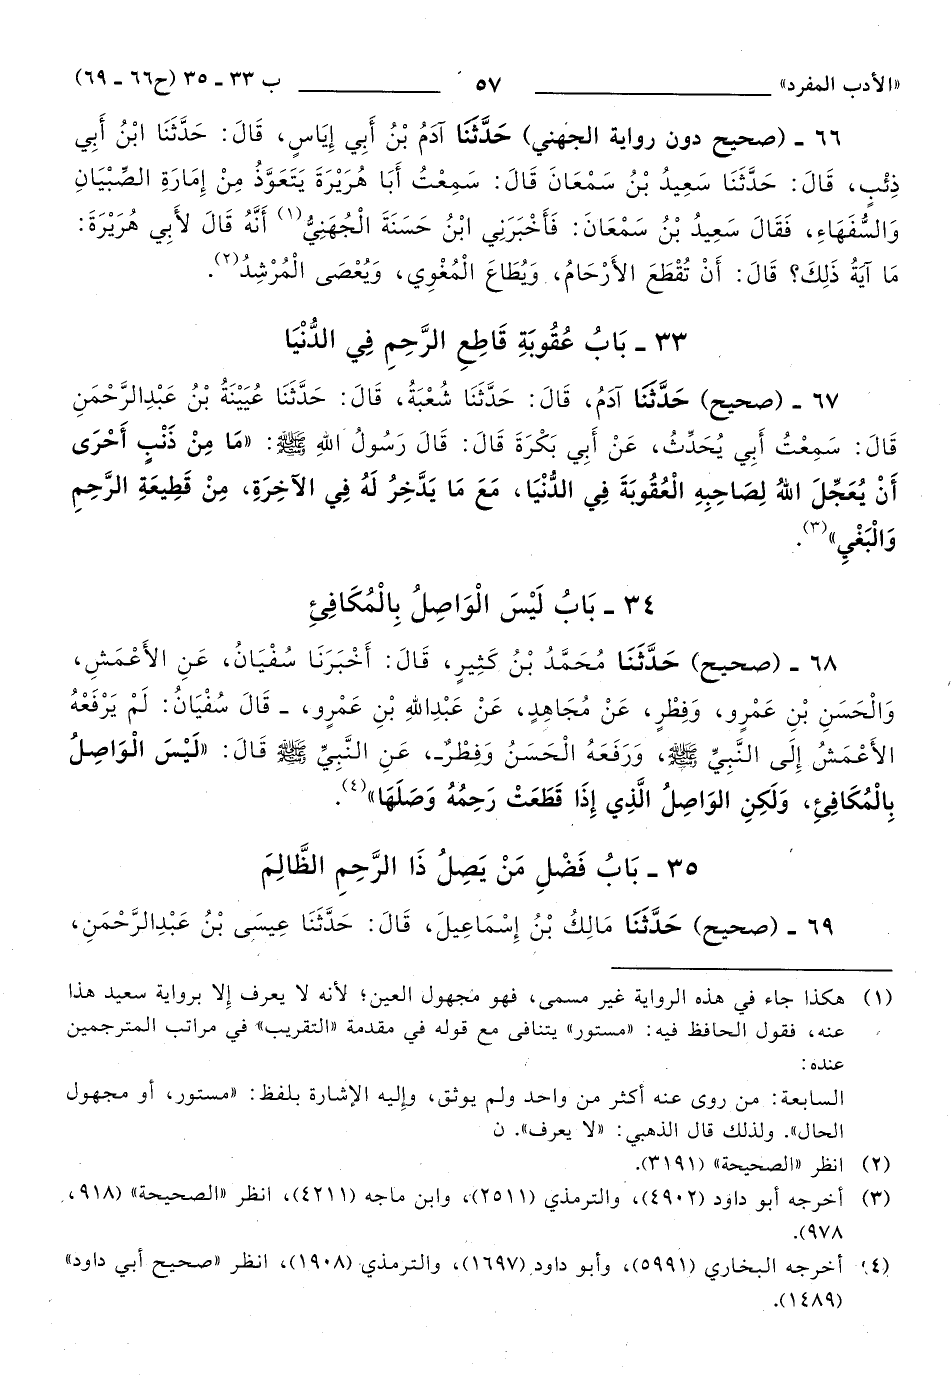 «الأدب المفرد» ٥٧ ب ٣٣ ـ ٣٥ (ح٦٦ ـ ٦٩)
٦٦ ـ (صحيح دون رواية الجهني) حَدَّثَنَا آدَمُ بْنُ أَبِي إِيَاسٍ، قَالَ: حَدَّثَنَا ابْنُ أَبِي
ذِئْبٍ، قَالَ: حَدَّثَنَا سَعِيدُ بْنُ سَمْعَانَ قَالَ: سَمِعْتُ أَبَا هُرَيْرَةَ يَتَعَوَّذُ مِنْ إِمَارَةِ الصِّبْيَانِ
وَالسُّفَهَاءِ، فَقَالَ سَعِيدُ بْنُ سَمْعَانَ: فَأَخْبَرَنِي ابْنُ حَسَنَةَ الْجُهَنِيُّ(١) أَنَّهُ قَالَ لأَبِي هُرَيْرَةَ:
مَا آيَةُ ذَلِكَ؟ قَالَ: أَنْ تُقْطَعَ الأَرْحَامُ، وَيُطَاعَ الْمُغْوِي، وَيُعْصَى الْمُرْشِدُ(٢).
٣٣ ـ بَابُ عُقُوبَةِ قَاطِعِ الرَّحِمِ فِي الدُّنْيَا
٦٧ ـ (صحيح) حَدَّثَنَا آدَمُ، قَالَ: حَدَّثَنَا شُعْبَةُ، قَالَ: حَدَّثَنَا عُيَيْنَةُ بْنُ عَبْدِالرَّحْمَنِ
قَالَ: سَمِعْتُ أَبِي يُحَدِّثُ، عَنْ أَبِي بَكْرَةَ قَالَ: قَالَ رَسُولُ اللهِ ﷺ: «مَا مِنْ ذَنْبٍ أَحْرَى
أَنْ يُعَجِّلَ اللهُ لِصَاحِبِهِ الْعُقُوبَةَ فِي الدُّنْيَا، مَعَ مَا يَدَّخِرُ لَهُ فِي الآخِرَةِ، مِنْ قَطِيعَةِ الرَّحِمِ
وَالْبَغْيِ»(٣).
٣٤ ـ بَابُ لَيْسَ الْوَاصِلُ بِالْمُكَافِئِ
٦٨ ـ (صحيح) حَدَّثَنَا مُحَمَّدُ بْنُ كَثِيرٍ، قَالَ: أَخْبَرَنَا سُفْيَانُ، عَنِ الأَعْمَشِ،
وَالْحَسَنِ بْنِ عَمْرٍو، وَفِطْرٍ، عَنْ مُجَاهِدٍ، عَنْ عَبْدِاللهِ بْنِ عَمْرٍو، ـ قَالَ سُفْيَانُ: لَمْ يَرْفَعْهُ
الأَعْمَشُ إِلَى النَّبِيِّ ﷺ، وَرَفَعَهُ الْحَسَنُ وَفِطْرٌـ، عَنِ النَّبِيِّ ﷺ قَالَ: «لَيْسَ الْوَاصِلُ
بِالْمُكَافِئِ، وَلَكِنِ الوَاصِلُ الَّذِي إِذَا قَطَعَتْ رَحِمُهُ وَصَلَهَا»(٤).
٣٥ ـ بَابُ فَضْلِ مَنْ يَصِلُ ذَا الرَّحِمِ الظَّالِمَ
٦٩ ـ (صحيح) حَدَّثَنَا مَالِكُ بْنُ إِسْمَاعِيلَ، قَالَ: حَدَّثَنَا عِيسَى بْنُ عَبْدِالرَّحْمَنِ،
(١) هكذا جاء في هذه الرواية غير مسمى، فهو مجهول العين؛ لأنه لا يعرف إلا برواية سعيد هذا
عنه، فقول الحافظ فيه: «مستور» يتنافى مع قوله في مقدمة «التقريب» في مراتب المترجمين
عنده:
السابعة: من روى عنه أكثر من واحد ولم يوثق، وإليه الإشارة بلفظ: «مستور، أو مجهول
الحال». ولذلك قال الذهبي: «لا يعرف». ن
(٢) انظر «الصحيحة» (٣١٩١).
(٣) أخرجه أبو داود (٤٩٠٢)، والترمذي (٢٥١١)، وابن ماجه (٤٢١١)، انظر «الصحيحة» (٩١٨،
٩٧٨).
(٤) أخرجه البخاري (٥٩٩١)، وأبو داود (١٦٩٧)، والترمذي (١٩٠٨)، انظر «صحيح أبي داود»
(١٤٨٩).